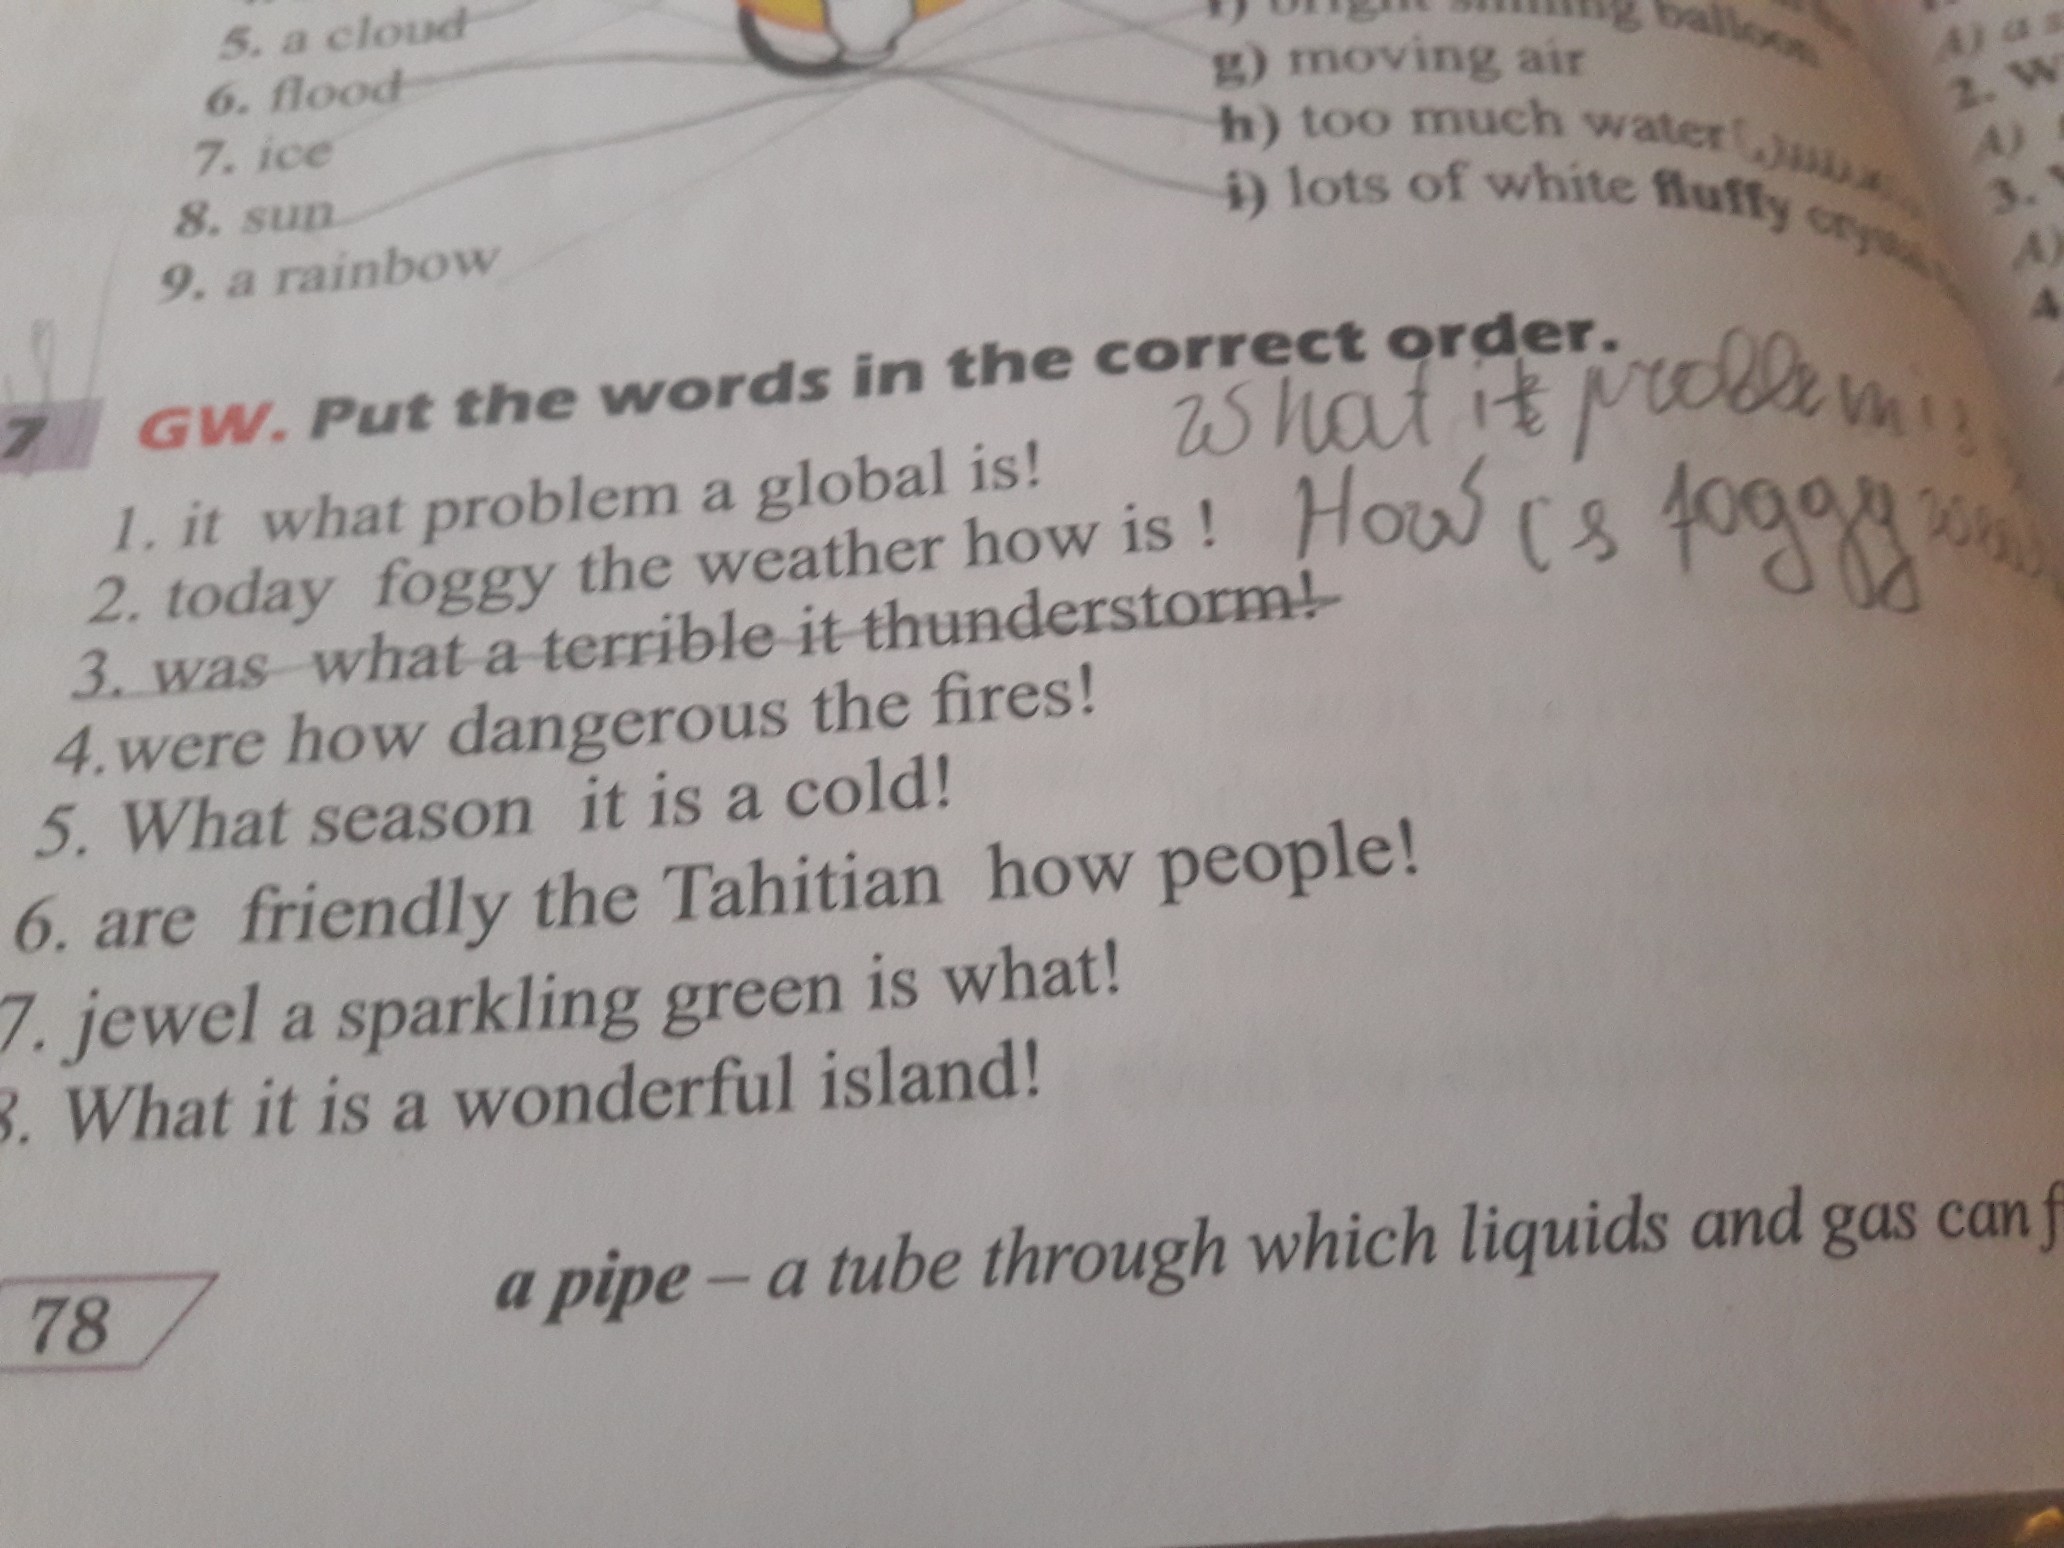 5. a cloud
6. flood
7. ice
8. sun
9. a rainbow
f) bright shining balloon
g) moving air
h) too much water
i) lots of white fluffy
7 GW. Put the words in the correct order.
1. it what problem a global is!
What it problem is
2. today foggy the weather how is !
How is foggy
3. was what a terrible it thunderstorm!
4. were how dangerous the fires!
5. What season it is a cold!
6. are friendly the Tahitian how people!
7. jewel a sparkling green is what!
8. What it is a wonderful island!
a pipe – a tube through which liquids and gas can f
78
A) a s
2. W
A)
3.
A)
4